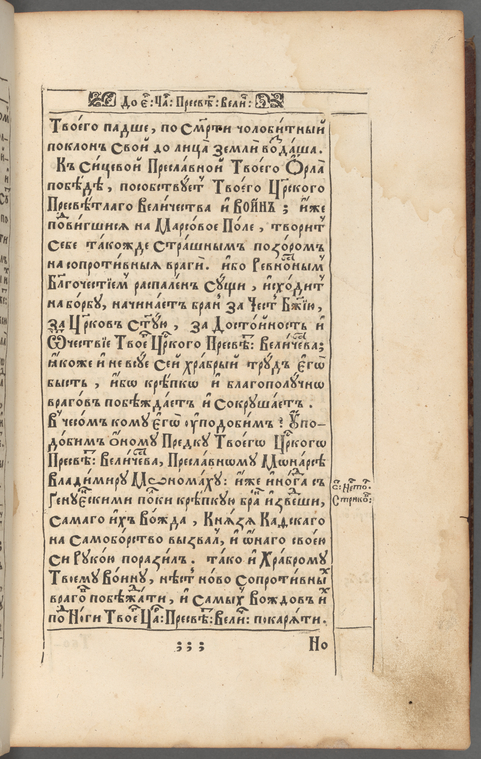 До Є҃: Ча҃: Пресвѣ: Вели:
Твоегѡ падше, по Смрти чоло­битный
поклон Свой до лица Земли въдаша.
Къ Сицевой Преславной Твоего Орла
побѣдѣ, пособствует Твоего Црского
Пресвѣтлаго Величества и Воинъ; иже
подвигшися на Марсовое Поле, творит
Себе такожде Страшнымъ позоромъ
на сопротивныя враги. ибо Ревностным
Благочестіем распален Сущи, исходит
на борбу, начинает брань за Честь Бжію,
за Церковъ Стую, за Достойность и
Ѿчествіе Твоего Црского Пресвѣ: Величества;
якоже и не всуе Сей храбрый трудъ Егѡ
бысть, ибо крѣпкѡ и благополучнѡ
враговъ побѣждает и Сокрушает.
В чесом кому Егѡ уподобим? Упо-
добим Оному Предку Твоегѡ Цркогѡ
Пресвѣ: Величства, Преславному Мѡнарсѣ
Владимиру Мѡномаху: иже иногда съ
Генуєскими полки крѣпкую брань изведши,
Самаго ихъ Вожда, Князя Кадскаго
на Самоборство вызвал, и ѡнаго своею
Си Рукою поразил. тако и Храброму
Твоему Воину, нѣст ново Сопротивных
враговъ побѣждати, и Самых Вождовъ их
под Ноги Твоего Ца: Пресвѣ: Вели: покаряти.
С: Нето:
Стрико:
; ; ; Но